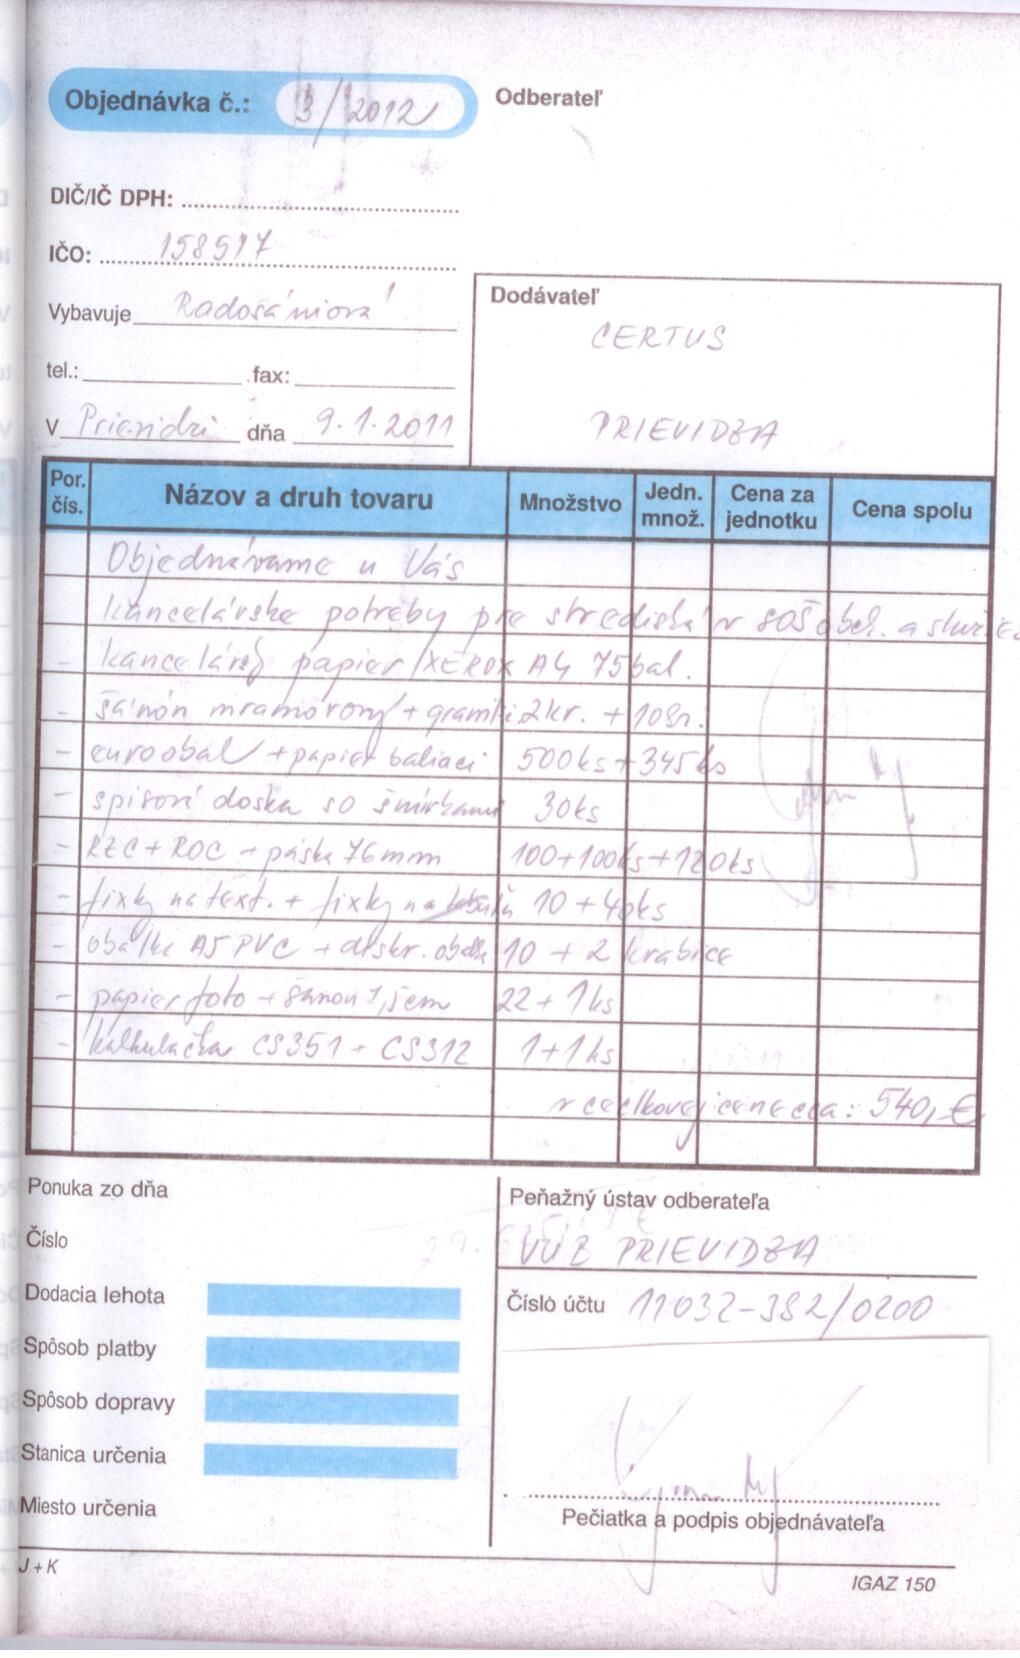 Objednávka č.: 3/2012
Odberateľ
DIČ/IČ DPH:
IČO: 158517
Vybavuje Radosániová
tel.: fax:
V Prievidzi dňa 9.1.2011
Dodávateľ
CERTUS
PRIEVIDZA
Por. čís. Názov a druh tovaru Množstvo Jedn. množ. Cena za jednotku Cena spolu
Objednávame u Vás
kancelárske potreby pre strediská v SOŠ obch. a služieb
- kancelársky papier XEROX A4 75bal.
- šanón mramorový + 2kr. + 10
- euroobal + papier baliaci 500ks + 345ks
- spisová doska so šnúrkami 30ks
- RZC + ROC + páska 76mm 100+100ks+120ks
- fixky na text. + fixky na 10 + 40ks
- obálka A5 PVC + diskr. 10 + 2 krabice
- papier foto + šanon 7,5cm 22 + 1ks
- kalkulačka CS351 + CS312 1+1ks
v celkovej cene cca: 540,€
Ponuka zo dňa
Číslo
Dodacia lehota
Spôsob platby
Spôsob dopravy
Stanica určenia
Miesto určenia
Peňažný ústav odberateľa
VÚB PRIEVIDZA
Číslo účtu 11032-382/0200
Pečiatka a podpis objednávateľa
J + K
IGAZ 150